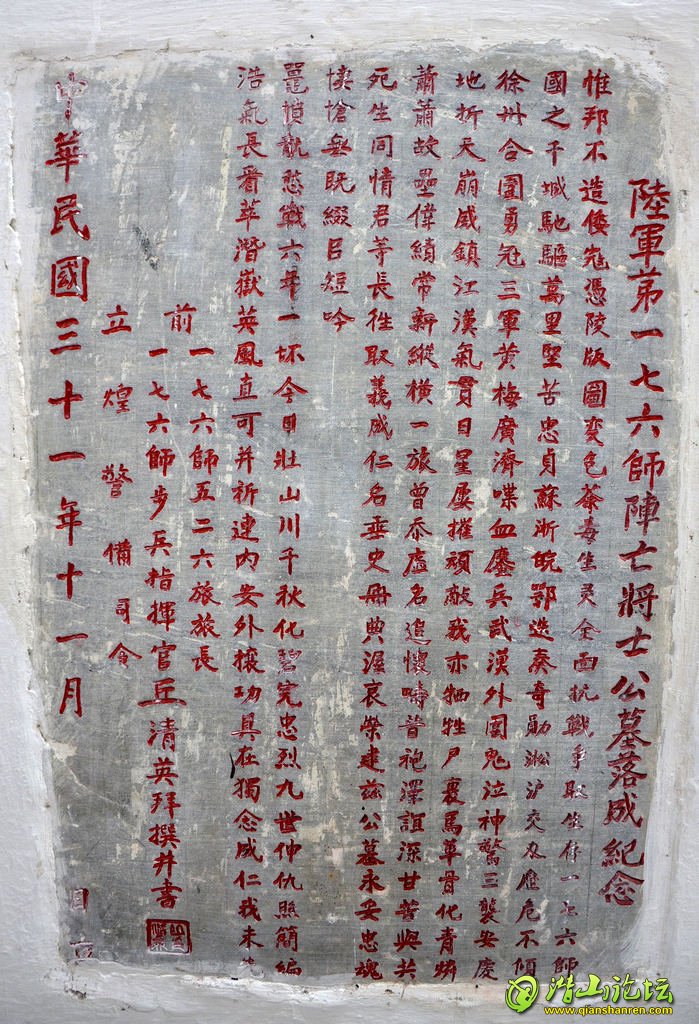 陸軍第一七六師陣亡將士公墓落成紀念
惟邦不造倭寇憑陵版圖变色荼毒生灵全面抗戰爭取生存一七六師
國之干城馳驅萬里堅苦忠貞蘇浙皖鄂迭奏奇勛淞沪交刃應危不傾
徐州合圍勇冠三軍黄梅廣濟喋血鏖兵武漢外圍鬼泣神驚三襲安慶
地折天崩威鎮江漢氣貫日星屡摧頑敵我亦牺牲尸裹馬革骨化青燐
蕭蕭故壘偉績常新縱橫一旅曾忝虛名追懷疇昔袍澤誼深甘苦與共
死生同情君等長徃取義成仁名垂史册典渥哀榮建兹公墓永妥忠魂
悽愴無既綴吕短吟
罷慎戰六年一坏今日壮山川千秋化碧完忠烈九世仲仇照簡編
浩氣長眷萃潜嶽英風直可并祈連内安外攘功具在獨念成仁我未先
前一七六師五二六旅旅長
一七六師步兵指揮官丘清英拜撰并書
立煌警備司令
中華民國三十一年十一月 日立
潜山论坛
www.qianshanren.com